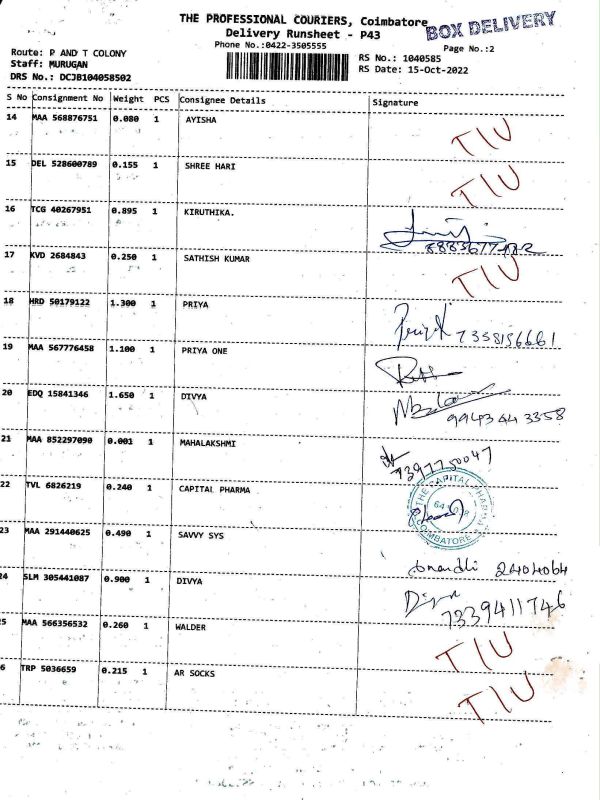 THE PROFESSIONAL COURIERS, Coimbatore
BOX DELIVERY
Delivery Runsheet - P43
Phone No.:0422-3505555
Page No.:2
Route: P AND T COLONY
Staff: MURUGAN
DRS No.: DCJB104058502
RS No.: 1040585
RS Date: 15-Oct-2022
S No Consignment No Weight PCS Consignee Details Signature
14 MAA 568876751 0.080 1 AYISHA TIU
15 DEL 528600789 0.155 1 SHREE HARI TIU
16 TCG 40267951 0.895 1 KIRUTHIKA.
17 KVD 2684843 0.250 1 SATHISH KUMAR TIU
18 HRD 50179122 1.300 1 PRIYA 7358156661
19 MAA 567776458 1.100 1 PRIYA ONE
20 EDQ 15841346 1.650 1 DIVYA 9943443358
21 MAA 852297090 0.001 1 MAHALAKSHMI 7397750047
22 TVL 6826219 0.240 1 CAPITAL PHARMA THE CAPITAL PHARMA COIMBATORE
23 MAA 291440625 0.490 1 SAVVY SYS 2404064
24 SLM 305441087 0.900 1 DIVYA 7339411746
25 MAA 566356532 0.260 1 WALDER TIU
6 TRP 5036659 0.215 1 AR SOCKS TIU